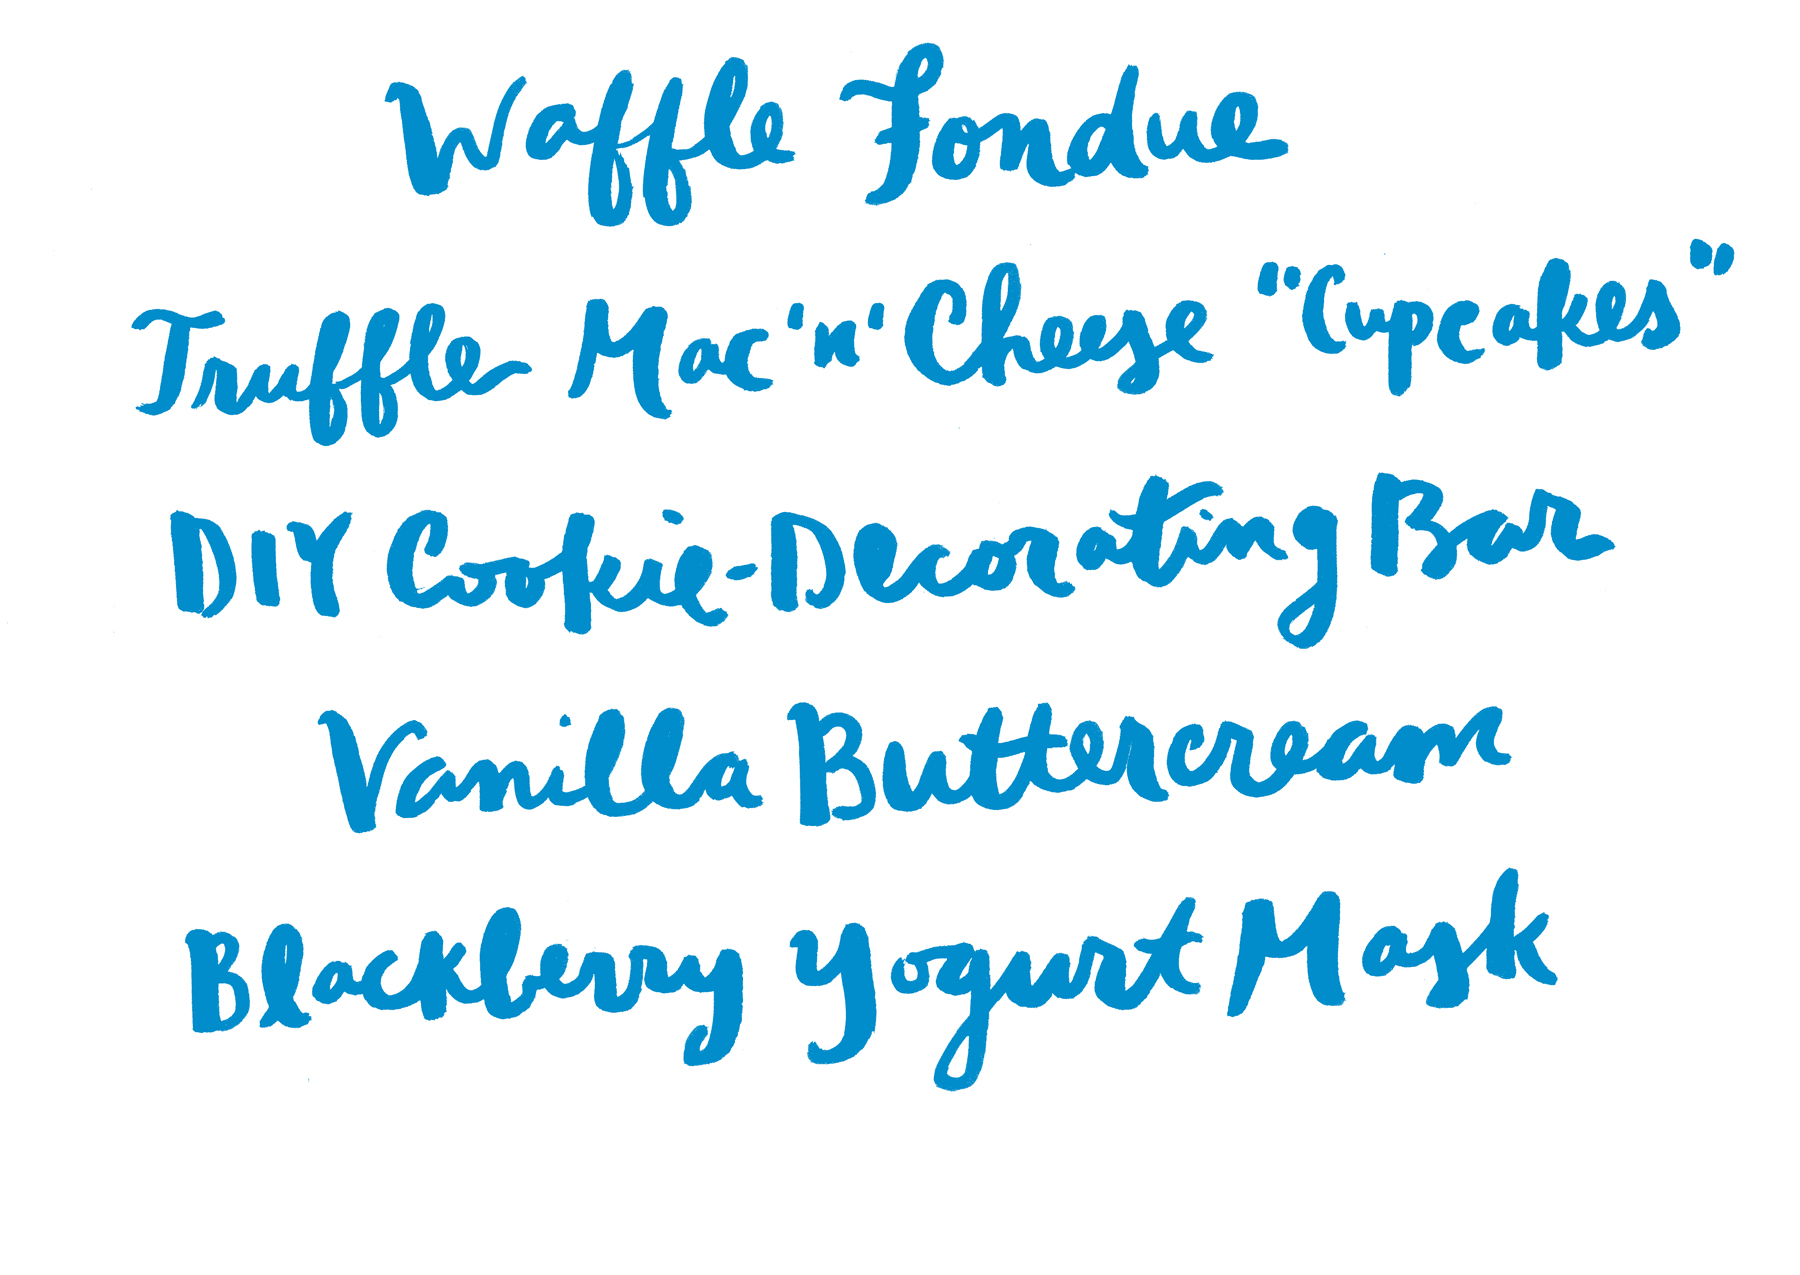 Waffle Fondue
Truffle Mac 'n' Cheese "Cupcakes"
DIY Cookie-Decorating Bar
Vanilla Buttercream
Blackberry Yogurt Mask